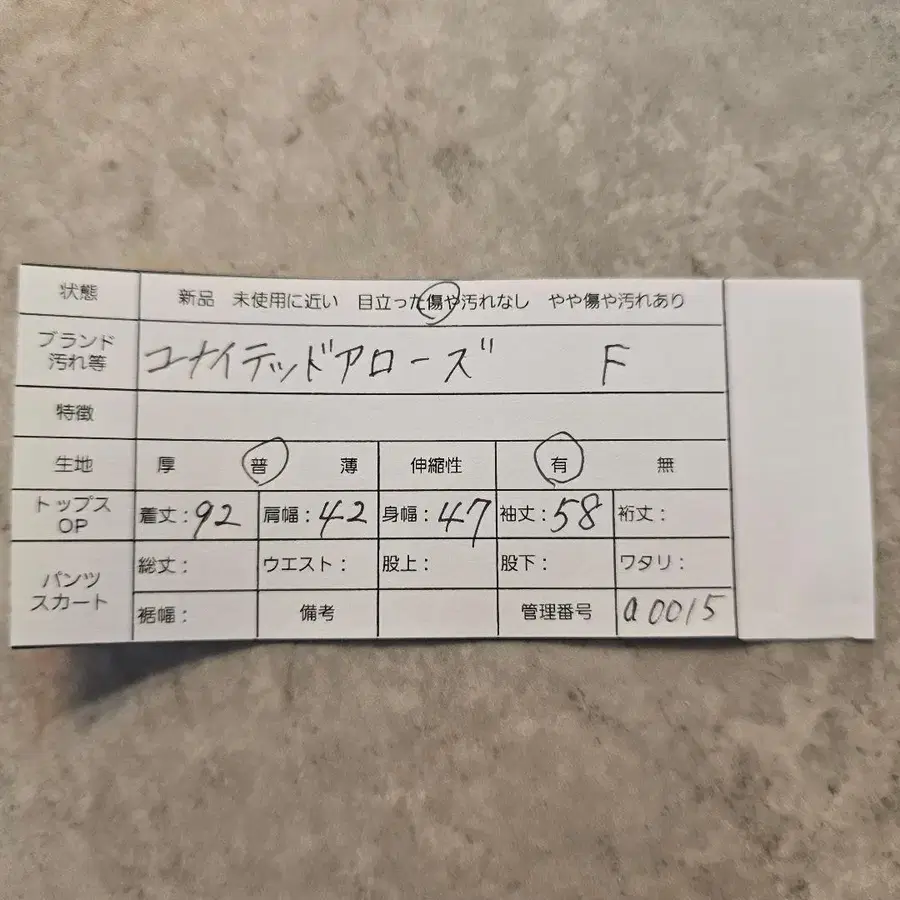 状態 新品 未使用に近い 目立った傷や汚れなし やや傷や汚れあり
ブランド 汚れ等 ユナイテッドアローズ F
特徴
生地 厚 普 薄 伸縮性 有 無
トップス OP 着丈:92 肩幅:42 身幅:47 袖丈:58 裄丈:
パンツ スカート 総丈: ウエスト: 股上: 股下: ワタリ:
裾幅: 備考 管理番号 a0015